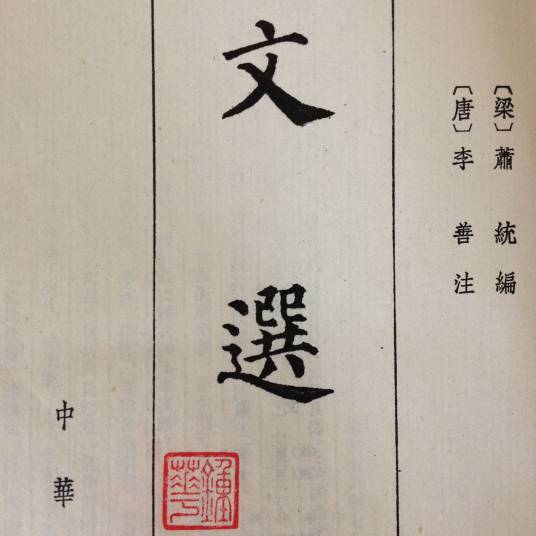 〔梁〕蕭統編
〔唐〕李善注
文選
中華